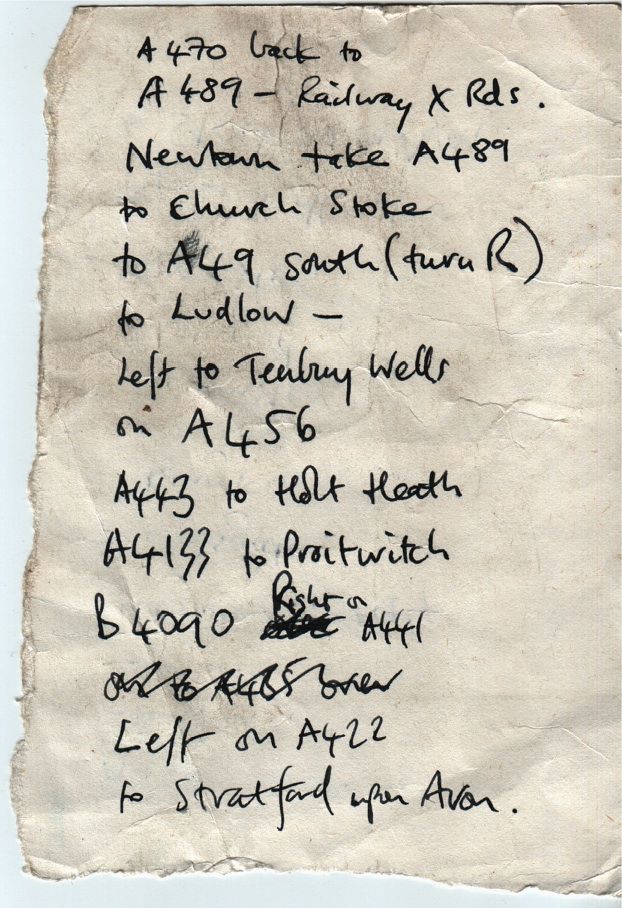 A470 back to
A489 - Railway X Rds.
Newtown take A489
to Church Stoke
to A49 south (turn R)
to Ludlow -
Left to Tenbury Wells
on A456
A443 to Holt Heath
A4133 to Droitwich
B4090 Right on A441
Left on A422
to Stratford upon Avon.